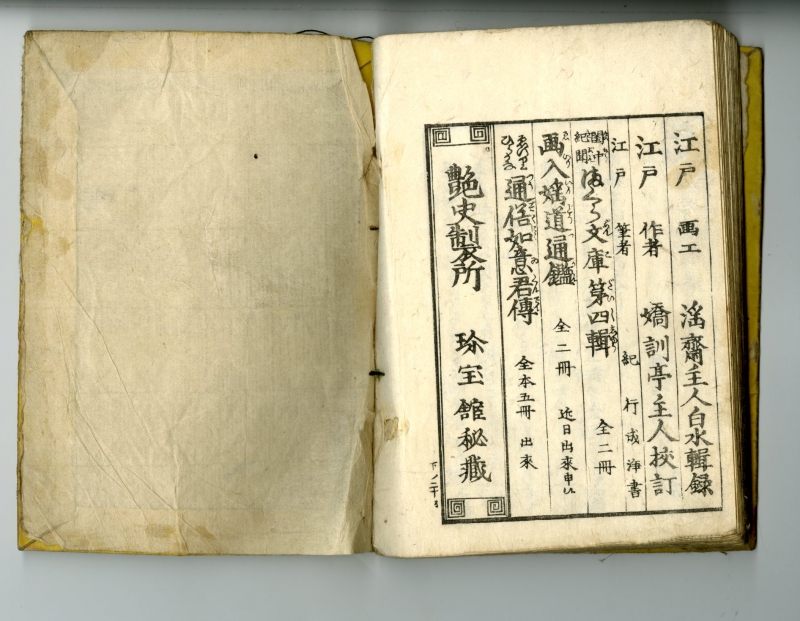 江戸 画工 淫齋主人白水輯録
江戸 作者 嬌訓亭主人挍訂
江戸 筆者 紀行成浄書
閨中紀聞 まくら文庫 第四輯 全二冊
画入婬道通鑑 全二冊 近日出来申候
ゑいり ひらがな 通俗如意君傳 全本五冊 出来
艶史製所 珍宝館秘藏